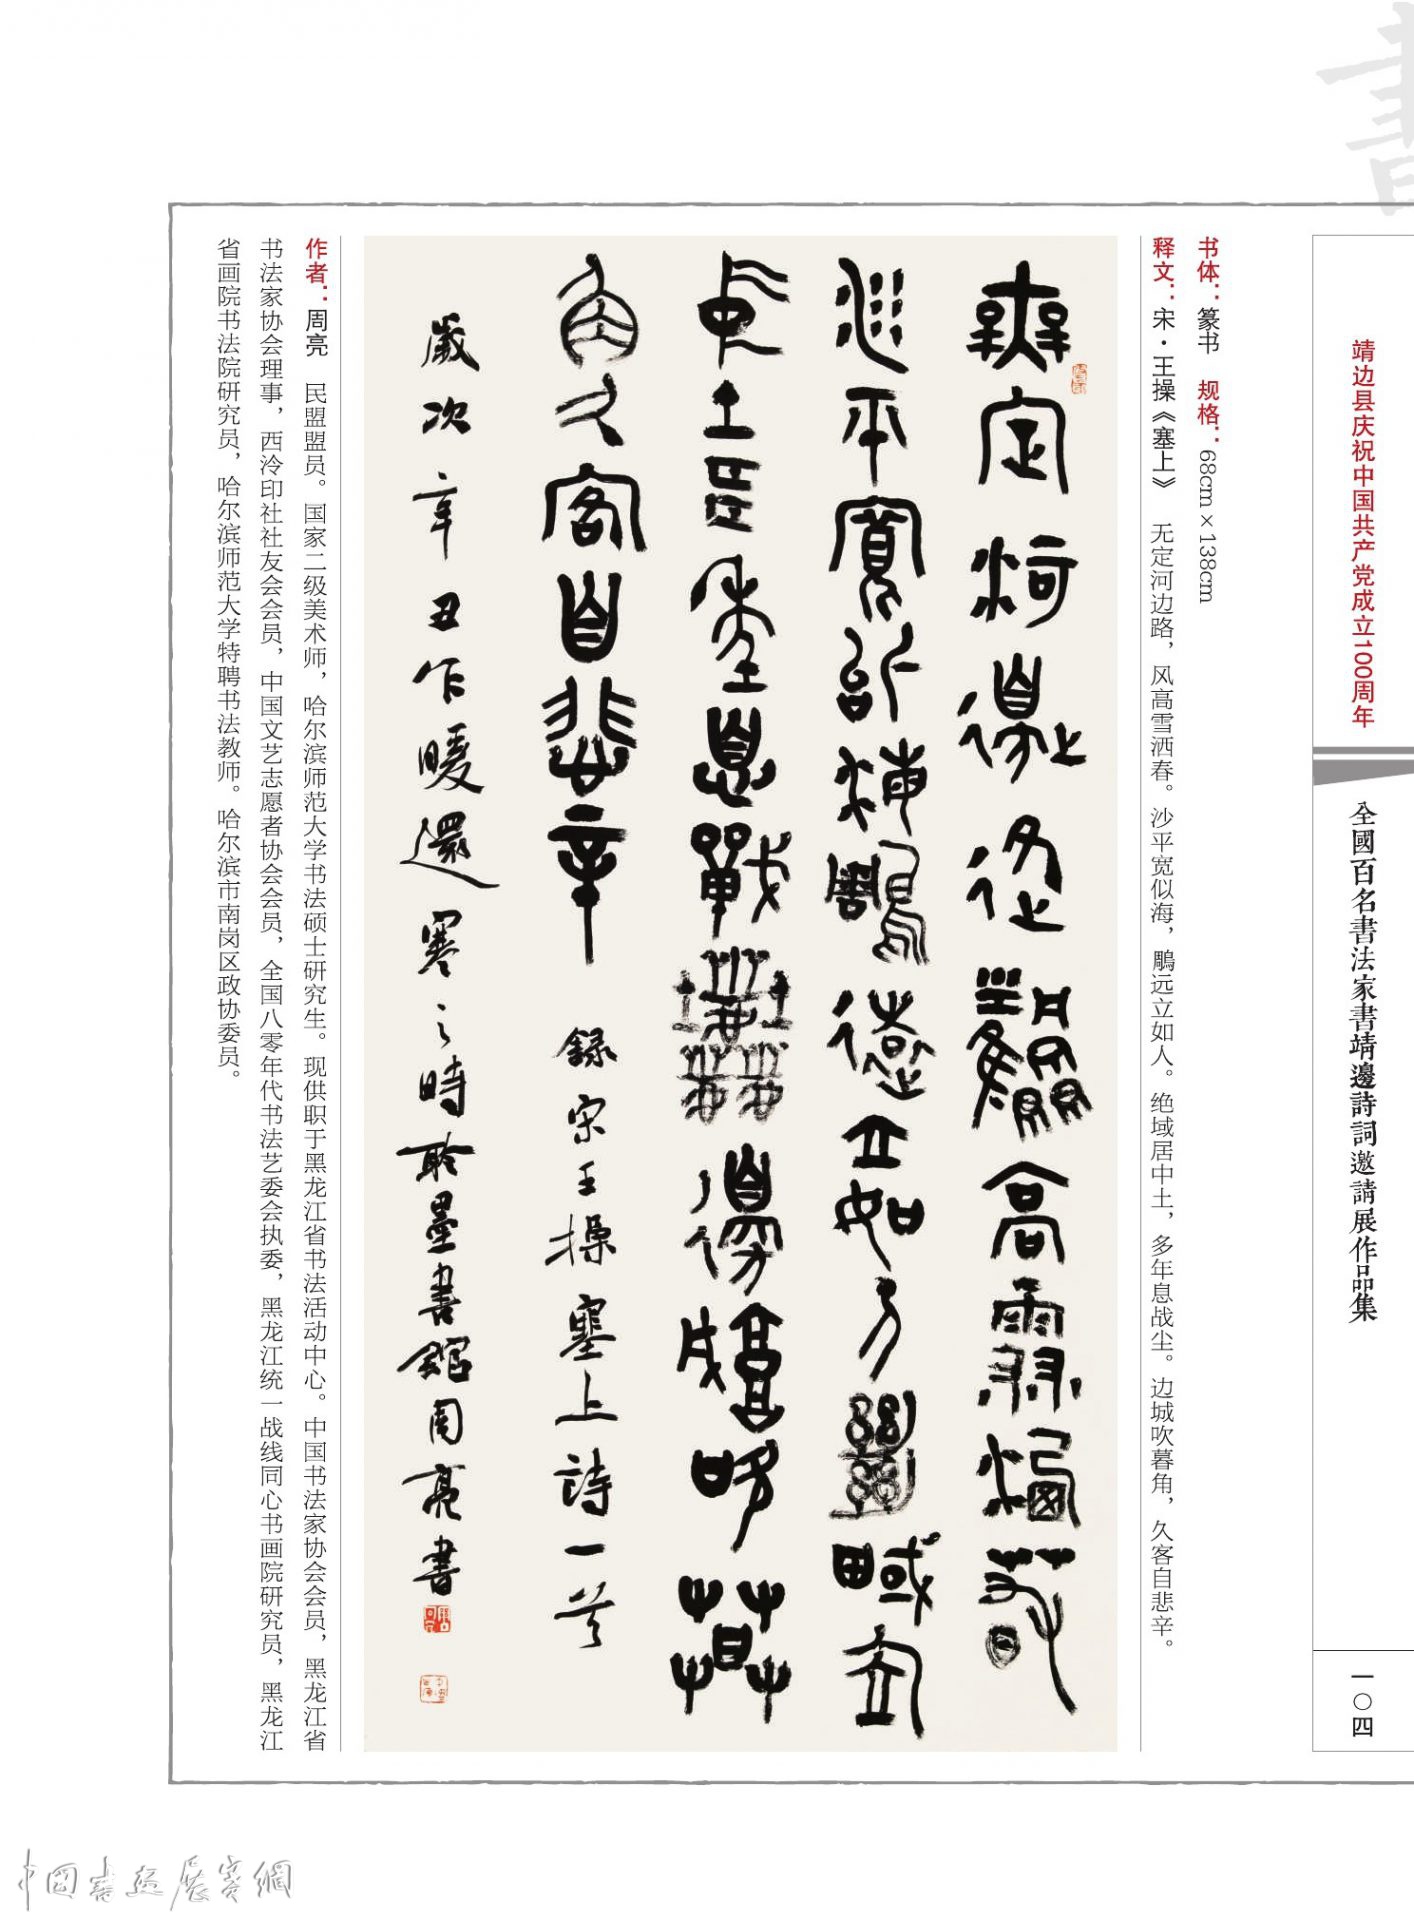 書
靖边县庆祝中国共产党成立100周年
全國百名書法家書靖邊詩詞邀請展作品集
一〇四
书体：篆书 规格：68cm×138cm
释文：宋·王操《塞上》 无定河边路，风高雪洒春。沙平宽似海，鵰远立如人。绝域居中土，多年息战尘。边城吹暮角，久客自悲辛。
無定河邊路風高雪灑春
沙平寬似海鵰遠立如人絕域居
中土多年息戰塵邊城吹暮
角久客自悲辛 錄宋王操塞上詩一首
歲次辛丑乍暖還寒之時聆墨書館周亮書
作者：周亮 民盟盟员。国家二级美术师，哈尔滨师范大学书法硕士研究生。现供职于黑龙江省书法活动中心。中国书法家协会会员，黑龙江省
书法家协会理事，西泠印社社友会会员，中国文艺志愿者协会会员，全国八零年代书法艺委会执委，黑龙江统一战线同心书画院研究员，黑龙江
省画院书法院研究员，哈尔滨师范大学特聘书法教师。哈尔滨市南岗区政协委员。
中國書画展賽網